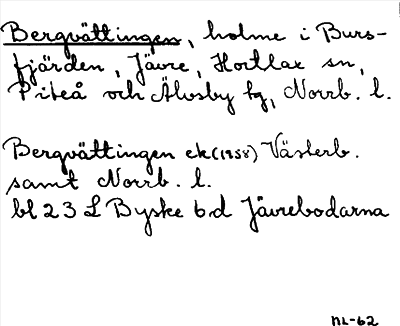 Bergvättingen, holme i Burs-
fjärden, Jävre, Hortlax sn,
Piteå och Älvsby tg, Norrb. l.
Bergvättingen ek(1958) Västerb.
samt Norrb. l.
bl 23 L Byske b.d Jävrebodarna
NL-62